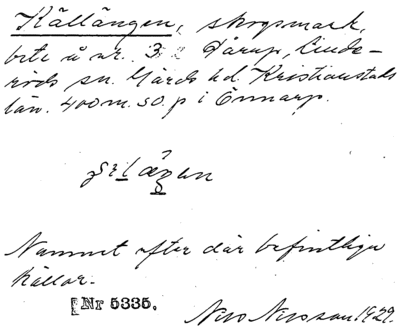 Källängen, skogsmark,
bete å nr. 3 Dårup, Linde-
röds sn. Gärds hd. Kristianstads
län. 400 m. SO. p i Önnarp.
Namnet efter där befintliga
källor.
[Nr 5335.
Nils Nilsson 1929.